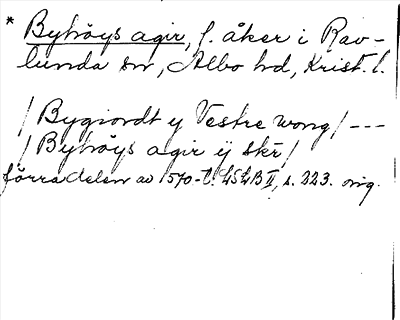 * Byhöys agir, f. åker i Rav-
lunda sn, Albo hd, Krist. l.
/ Bygiordt y Vestre wong / ---
/ Byhöys agir ÿ skr /
förra delen av 1570-t. LSLB II, s. 223. orig.